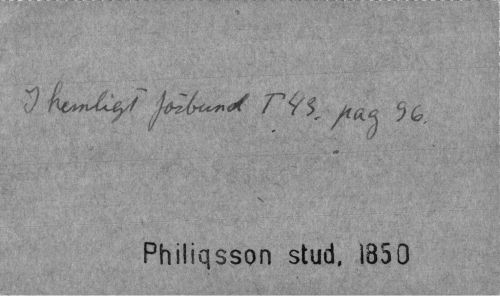 I hemligt förbund T 43. pag 96.
Philiqsson stud, 1850